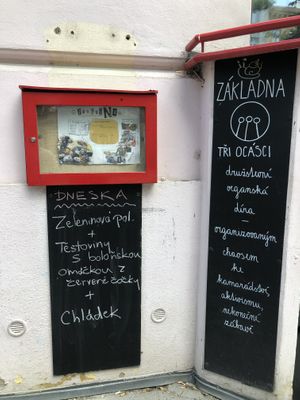 DNESKA
Zeleninová pol.
+
Těstoviny
s boloňskou
omáčkou z
červené čočky
+
Chládek
ZÁKLADNA
TŘI OCÁSCI
družstevní
organská
díra –
organizovaným
chaosem
ke
kamarádství,
aktivismu,
nekonečné
zábavě